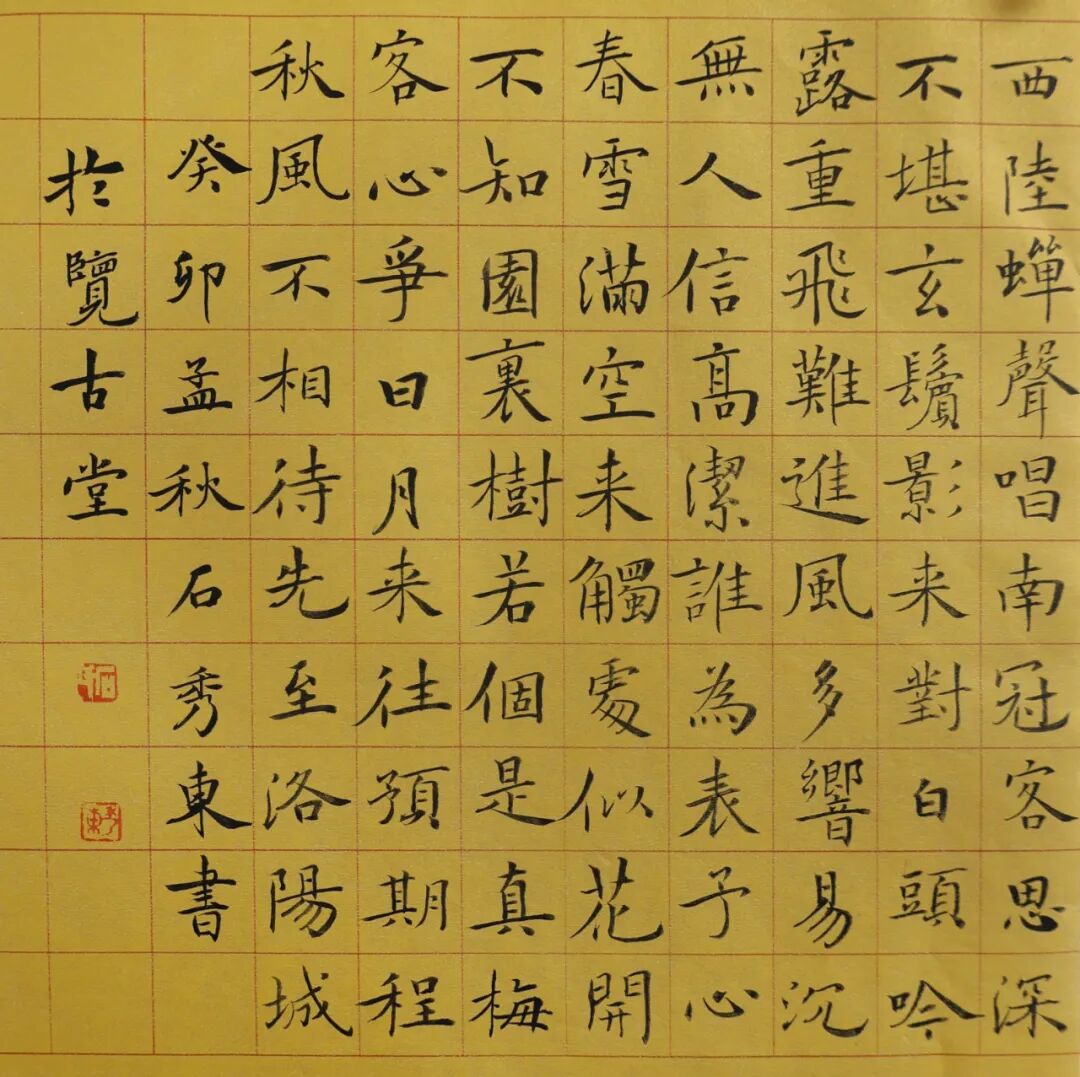 西陸蟬聲唱南冠客思深
不堪玄鬢影来對白頭吟
露重飛難進風多響易沉
無人信高潔誰為表予心
春雪滿空来觸處似花開
不知園裏樹若個是真梅
客心爭日月来往預期程
秋風不相待先至洛陽城
癸卯孟秋石秀東書
於覽古堂